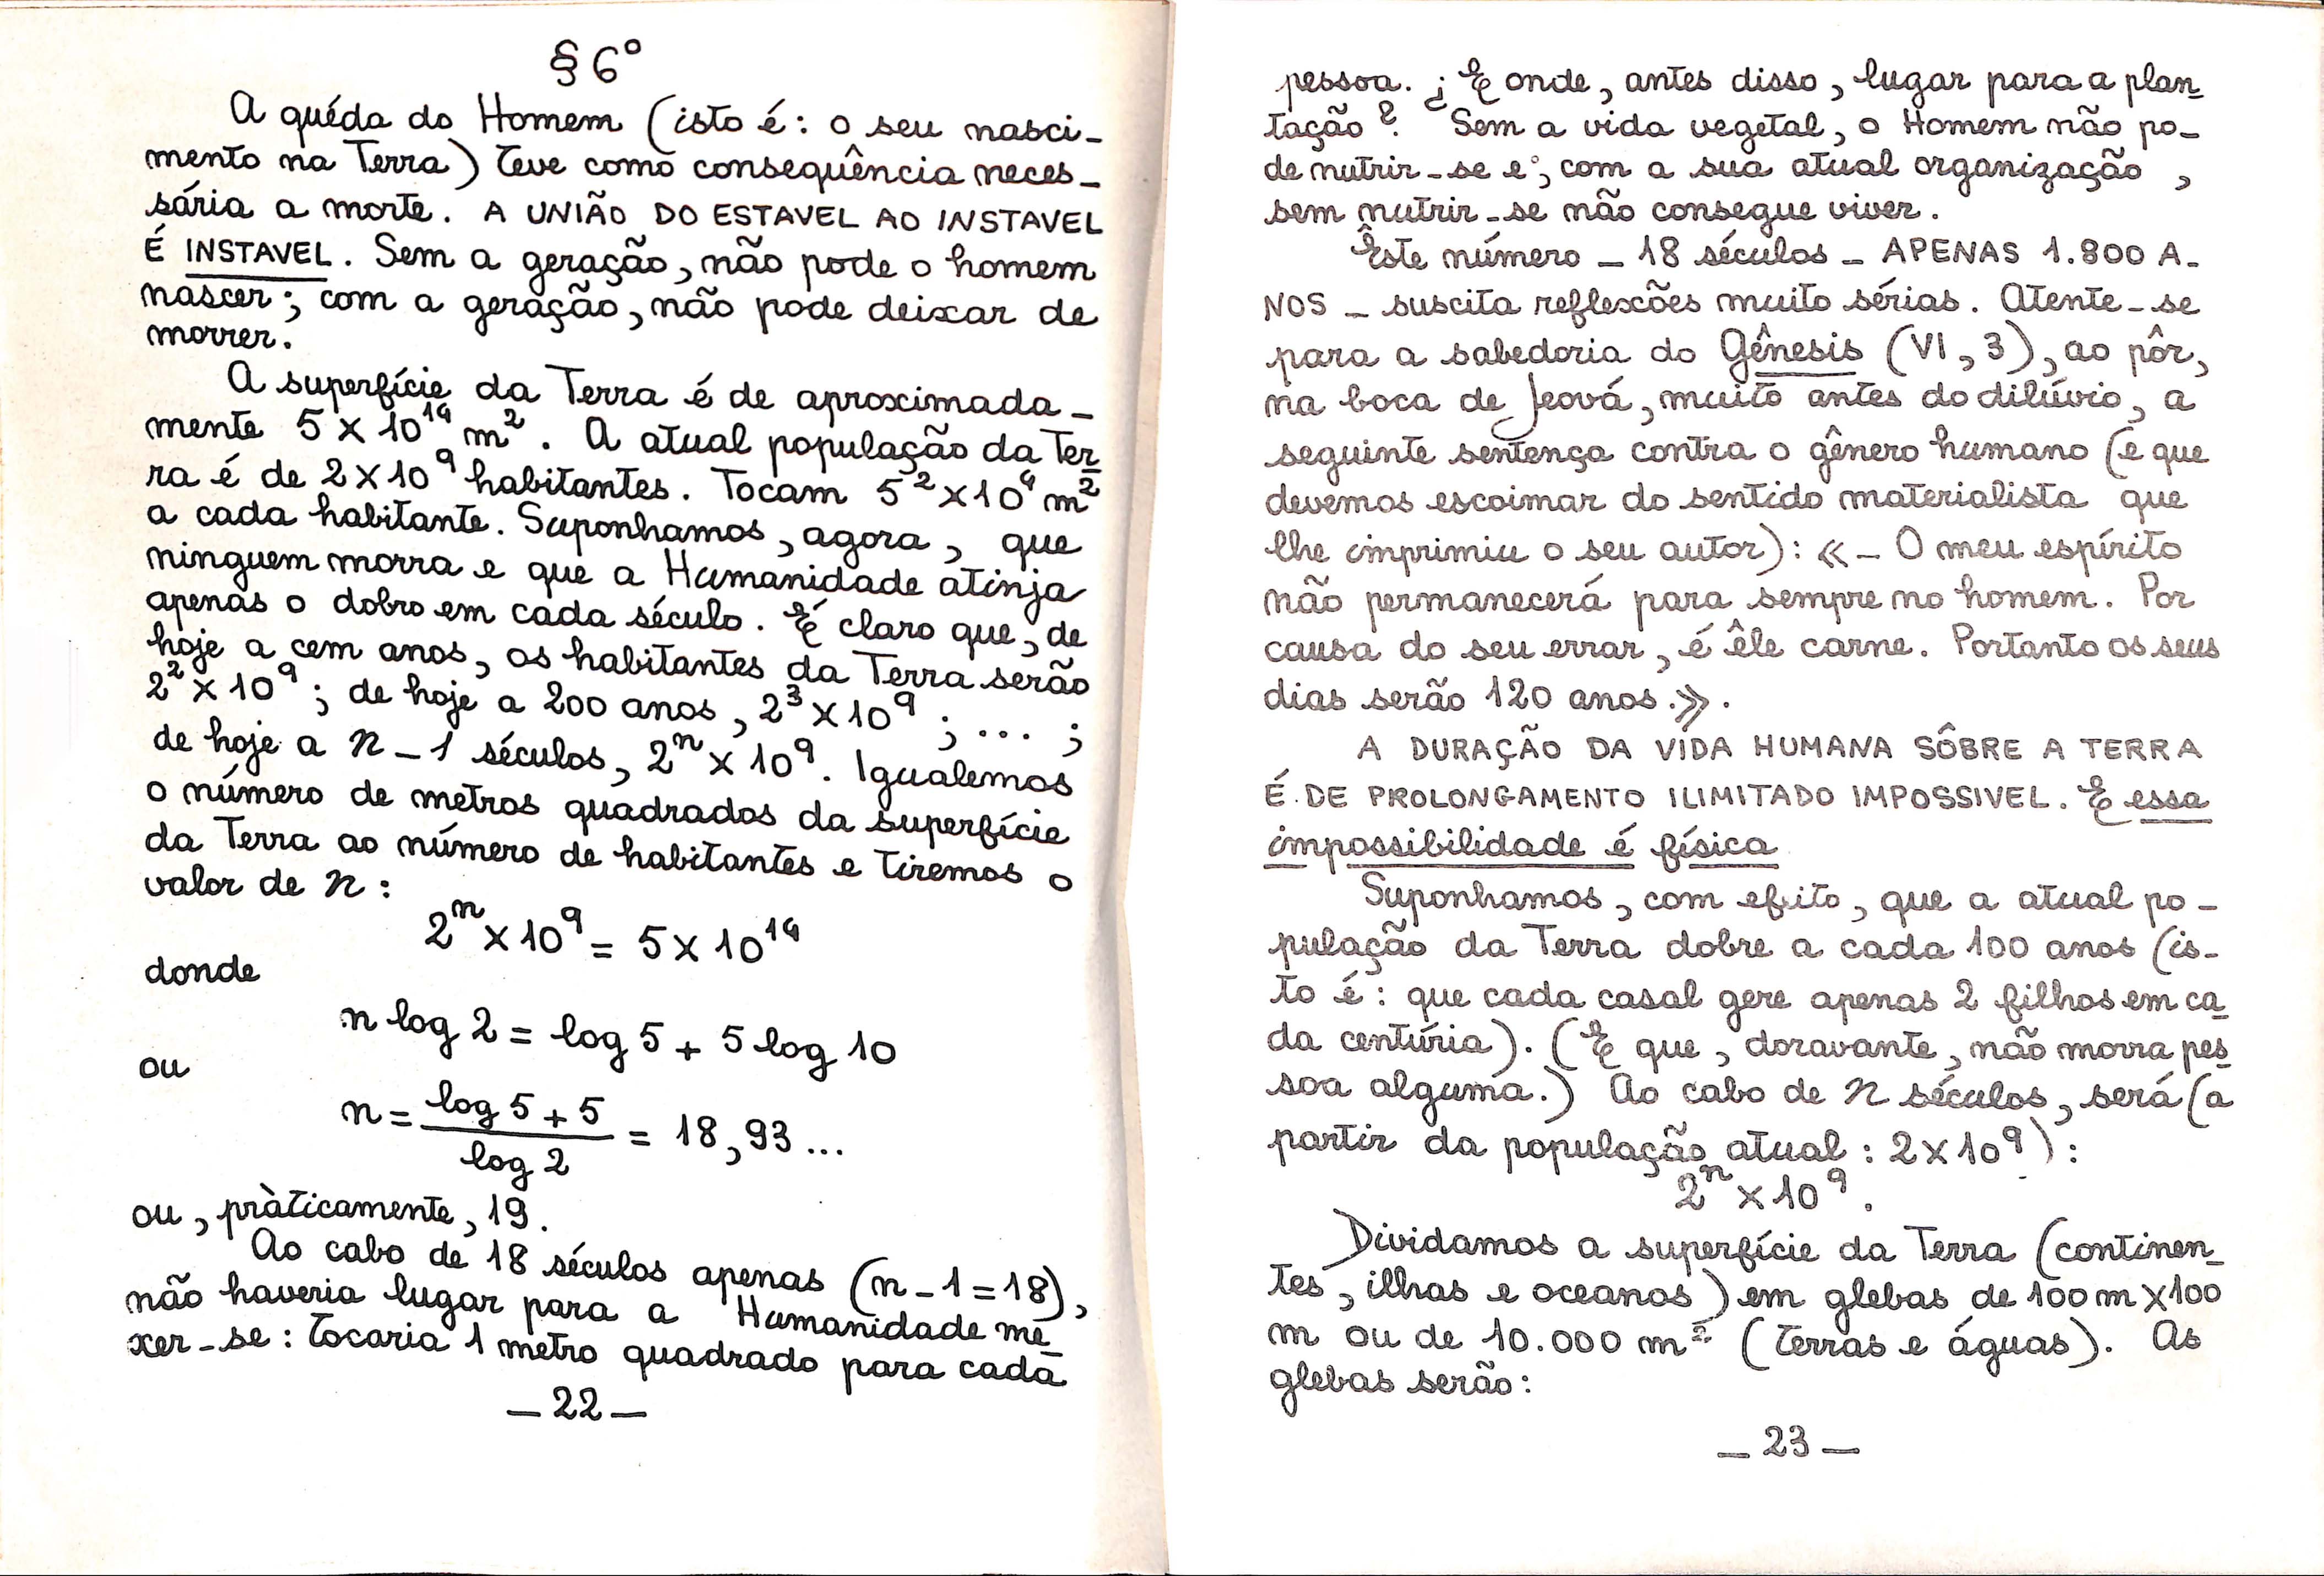 § 6º
A quéda do Homem (isto é: o seu nasci-
mento na Terra) teve como consequência neces-
sária a morte. A UNIÃO DO ESTAVEL AO INSTAVEL
É INSTAVEL. Sem a geração, não pode o homem
nascer; com a geração, não pode deixar de
morrer.
A superfície da Terra é de aproximada-
mente 5 x 10¹⁴ m². A atual população da Ter
ra é de 2 x 10⁹ habitantes. Tocam 5² x 10⁴ m²
a cada habitante. Suponhamos, agora, que
ninguem morra e que a Humanidade atinja
apenas o dobro em cada século. É claro que, de
hoje a cem anos, os habitantes da Terra serão
2² x 10⁹; de hoje a 200 anos, 2³ x 10⁹; ... ;
de hoje a n - 1 séculos, 2ⁿ x 10⁹. Igualemos
o número de metros quadrados da superfície
da Terra ao número de habitantes e tiremos o
valor de n:
2ⁿ x 10⁹ = 5 x 10¹⁴
donde
n log 2 = log 5 + 5 log 10
ou
n = (log 5 + 5) / log 2 = 18,93...
ou, pràticamente, 19.
Ao cabo de 18 séculos apenas (n - 1 = 18),
não haveria lugar para a Humanidade me
xer-se: tocaria 1 metro quadrado para cada
- 22 -
pessoa. ¿ E onde, antes disso, lugar para a plan
tação? Sem a vida vegetal, o Homem não po-
de nutrir-se e, com a sua atual organização,
sem nutrir-se não consegue viver.
Êste número - 18 séculos - APENAS 1.800 A-
NOS - suscita reflexões muito sérias. Atente-se
para a sabedoria do Gênesis (VI, 3), ao pôr,
na boca de Jeová, muito antes do dilúvio, a
seguinte sentença contra o gênero humano (e que
devemos escoimar do sentido materialista que
lhe imprimiu o seu autor): «- O meu espírito
não permanecerá para sempre no homem. Por
causa do seu errar, é êle carne. Portanto os seus
dias serão 120 anos.».
A DURAÇÃO DA VIDA HUMANA SÔBRE A TERRA
É DE PROLONGAMENTO ILIMITADO IMPOSSIVEL. E essa
impossibilidade é física
Suponhamos, com efeito, que a atual po-
pulação da Terra dobre a cada 100 anos (is-
to é: que cada casal gere apenas 2 filhos em ca
da centúria). (E que, doravante, não morra pes
soa alguma.) Ao cabo de n séculos, será (a
partir da população atual: 2 x 10⁹):
2ⁿ x 10⁹.
Dividamos a superfície da Terra (continen
tes, ilhas e oceanos) em glebas de 100 m x 100
m ou de 10.000 m² (terras e águas). As
glebas serão:
- 23 -